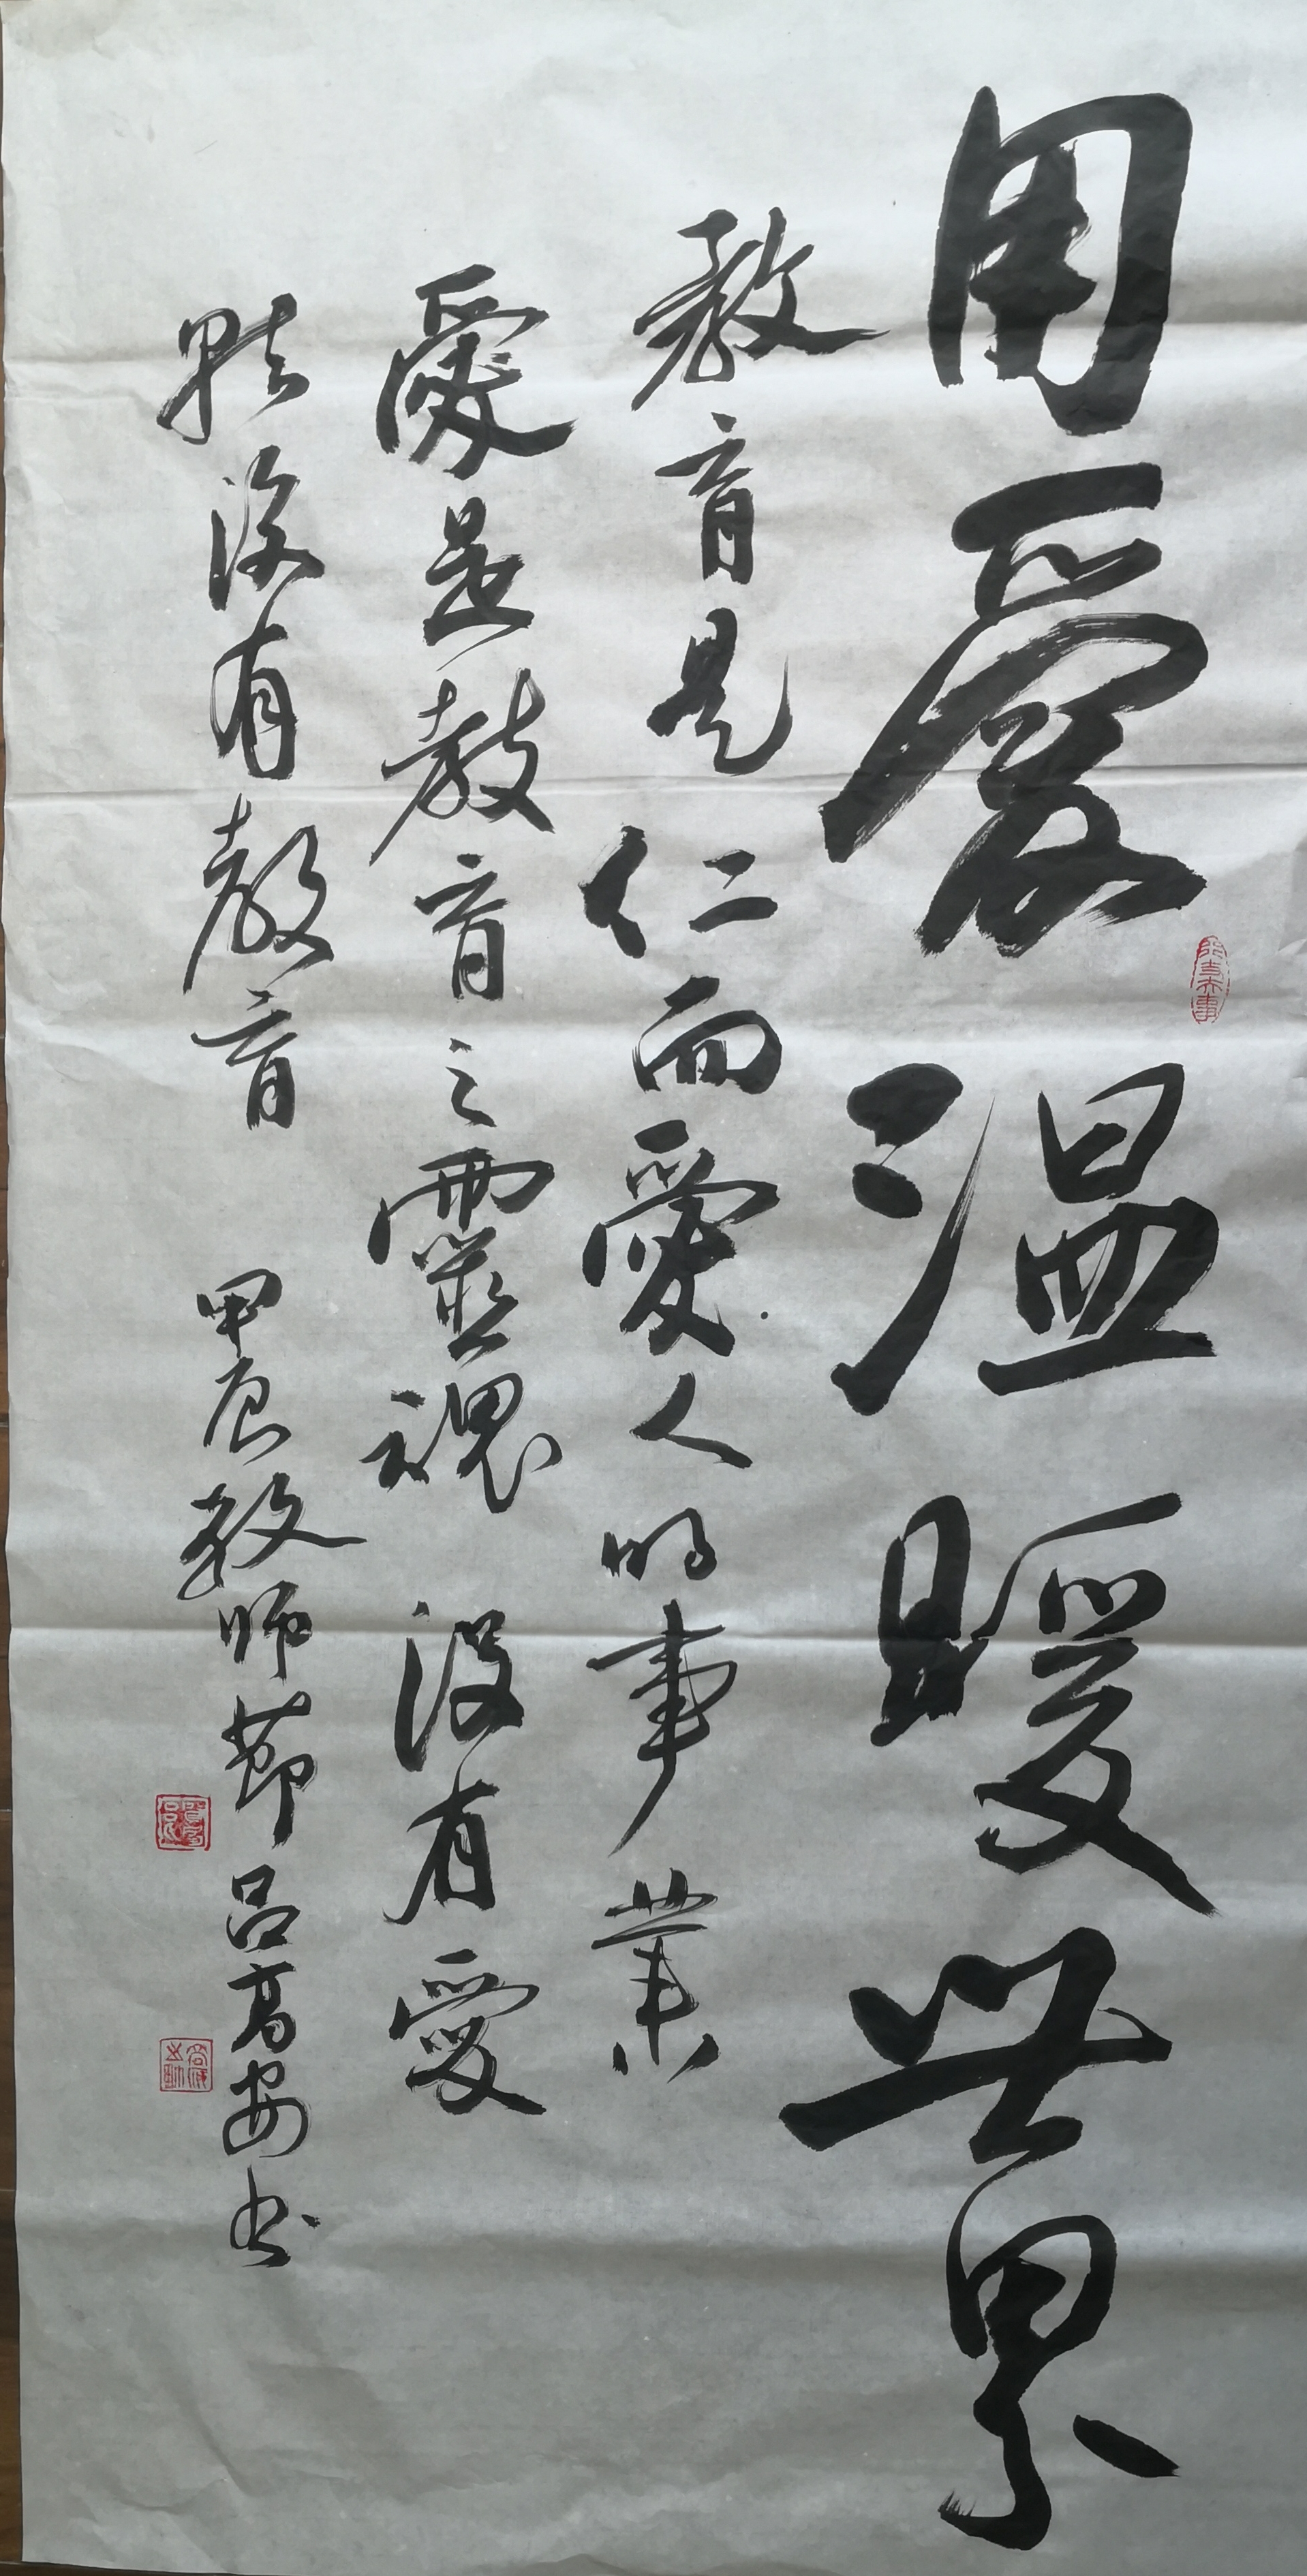 用愛温暖世界
教育是仁而愛人的事業
愛是教育之靈魂 没有愛
就没有教育 甲辰教师節 吕高安书